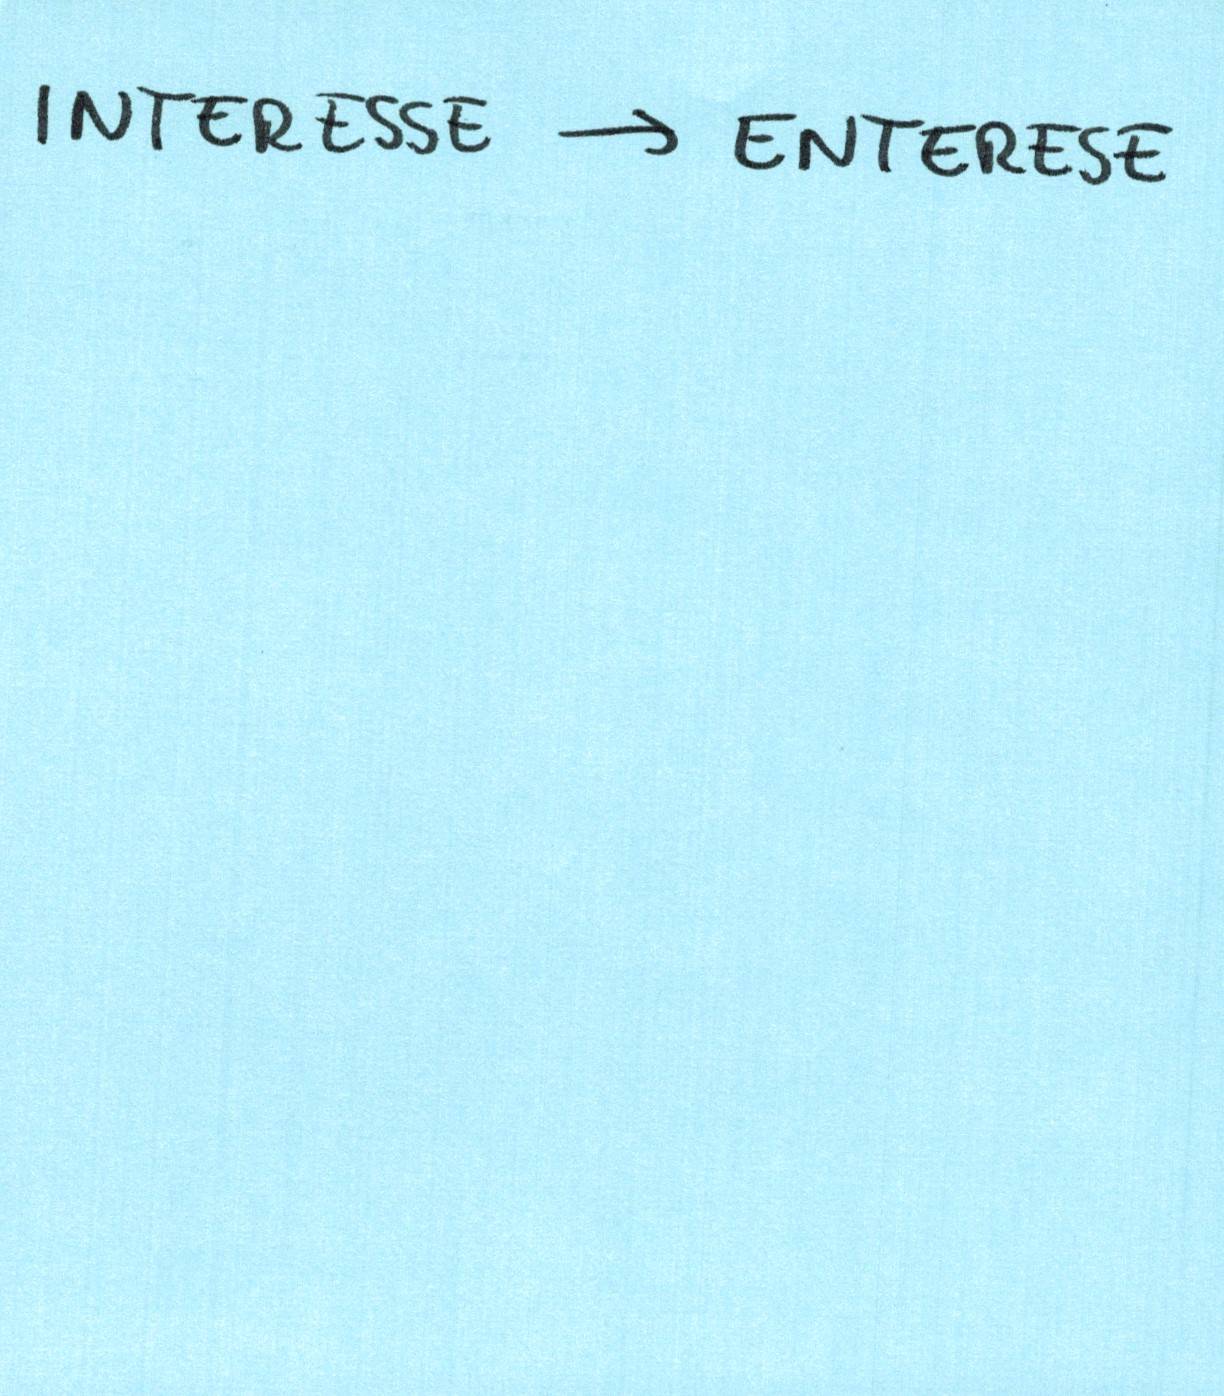 INTERESSE → ENTERESE